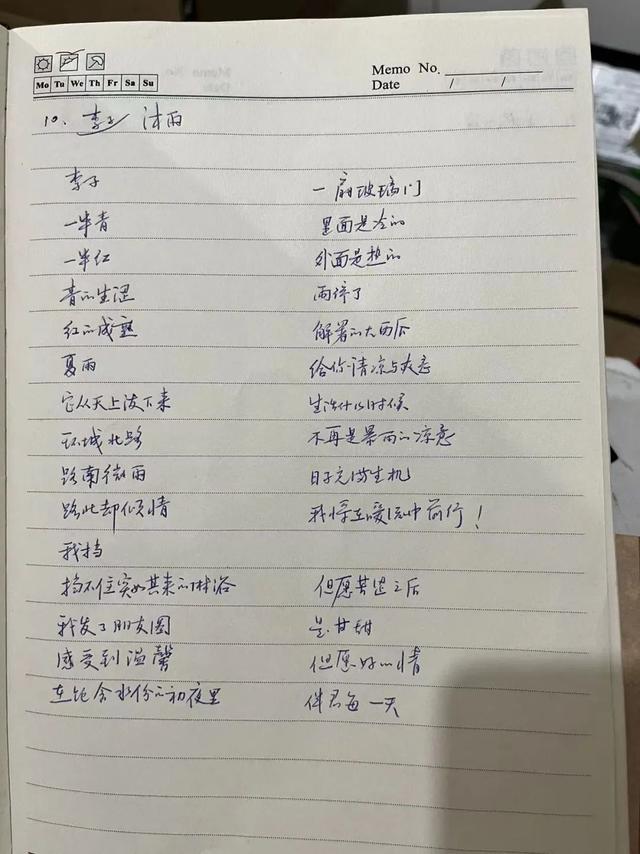 Mo Tu We Th Fr Sa Su
Memo No.
Date / /
10. 李子 沐雨
李子
一半青
一半红
青的生涩
红的成熟
夏雨
它从天上泼下来
环城北路
路南微雨
路北却倾情
我挡
挡不住突如其来的淋浴
我发了朋友圈
感受到温馨
在饱含水份的初夜里
一扇玻璃门
里面是冷的
外面是热的
雨停了
解暑的大西瓜
给你清凉与爽意
生活什么时候
不再是暴雨的凉意
日子充满生机
我将在暖流中前行!
但愿苦涩之后
是甘甜
但愿好心情
伴君每一天